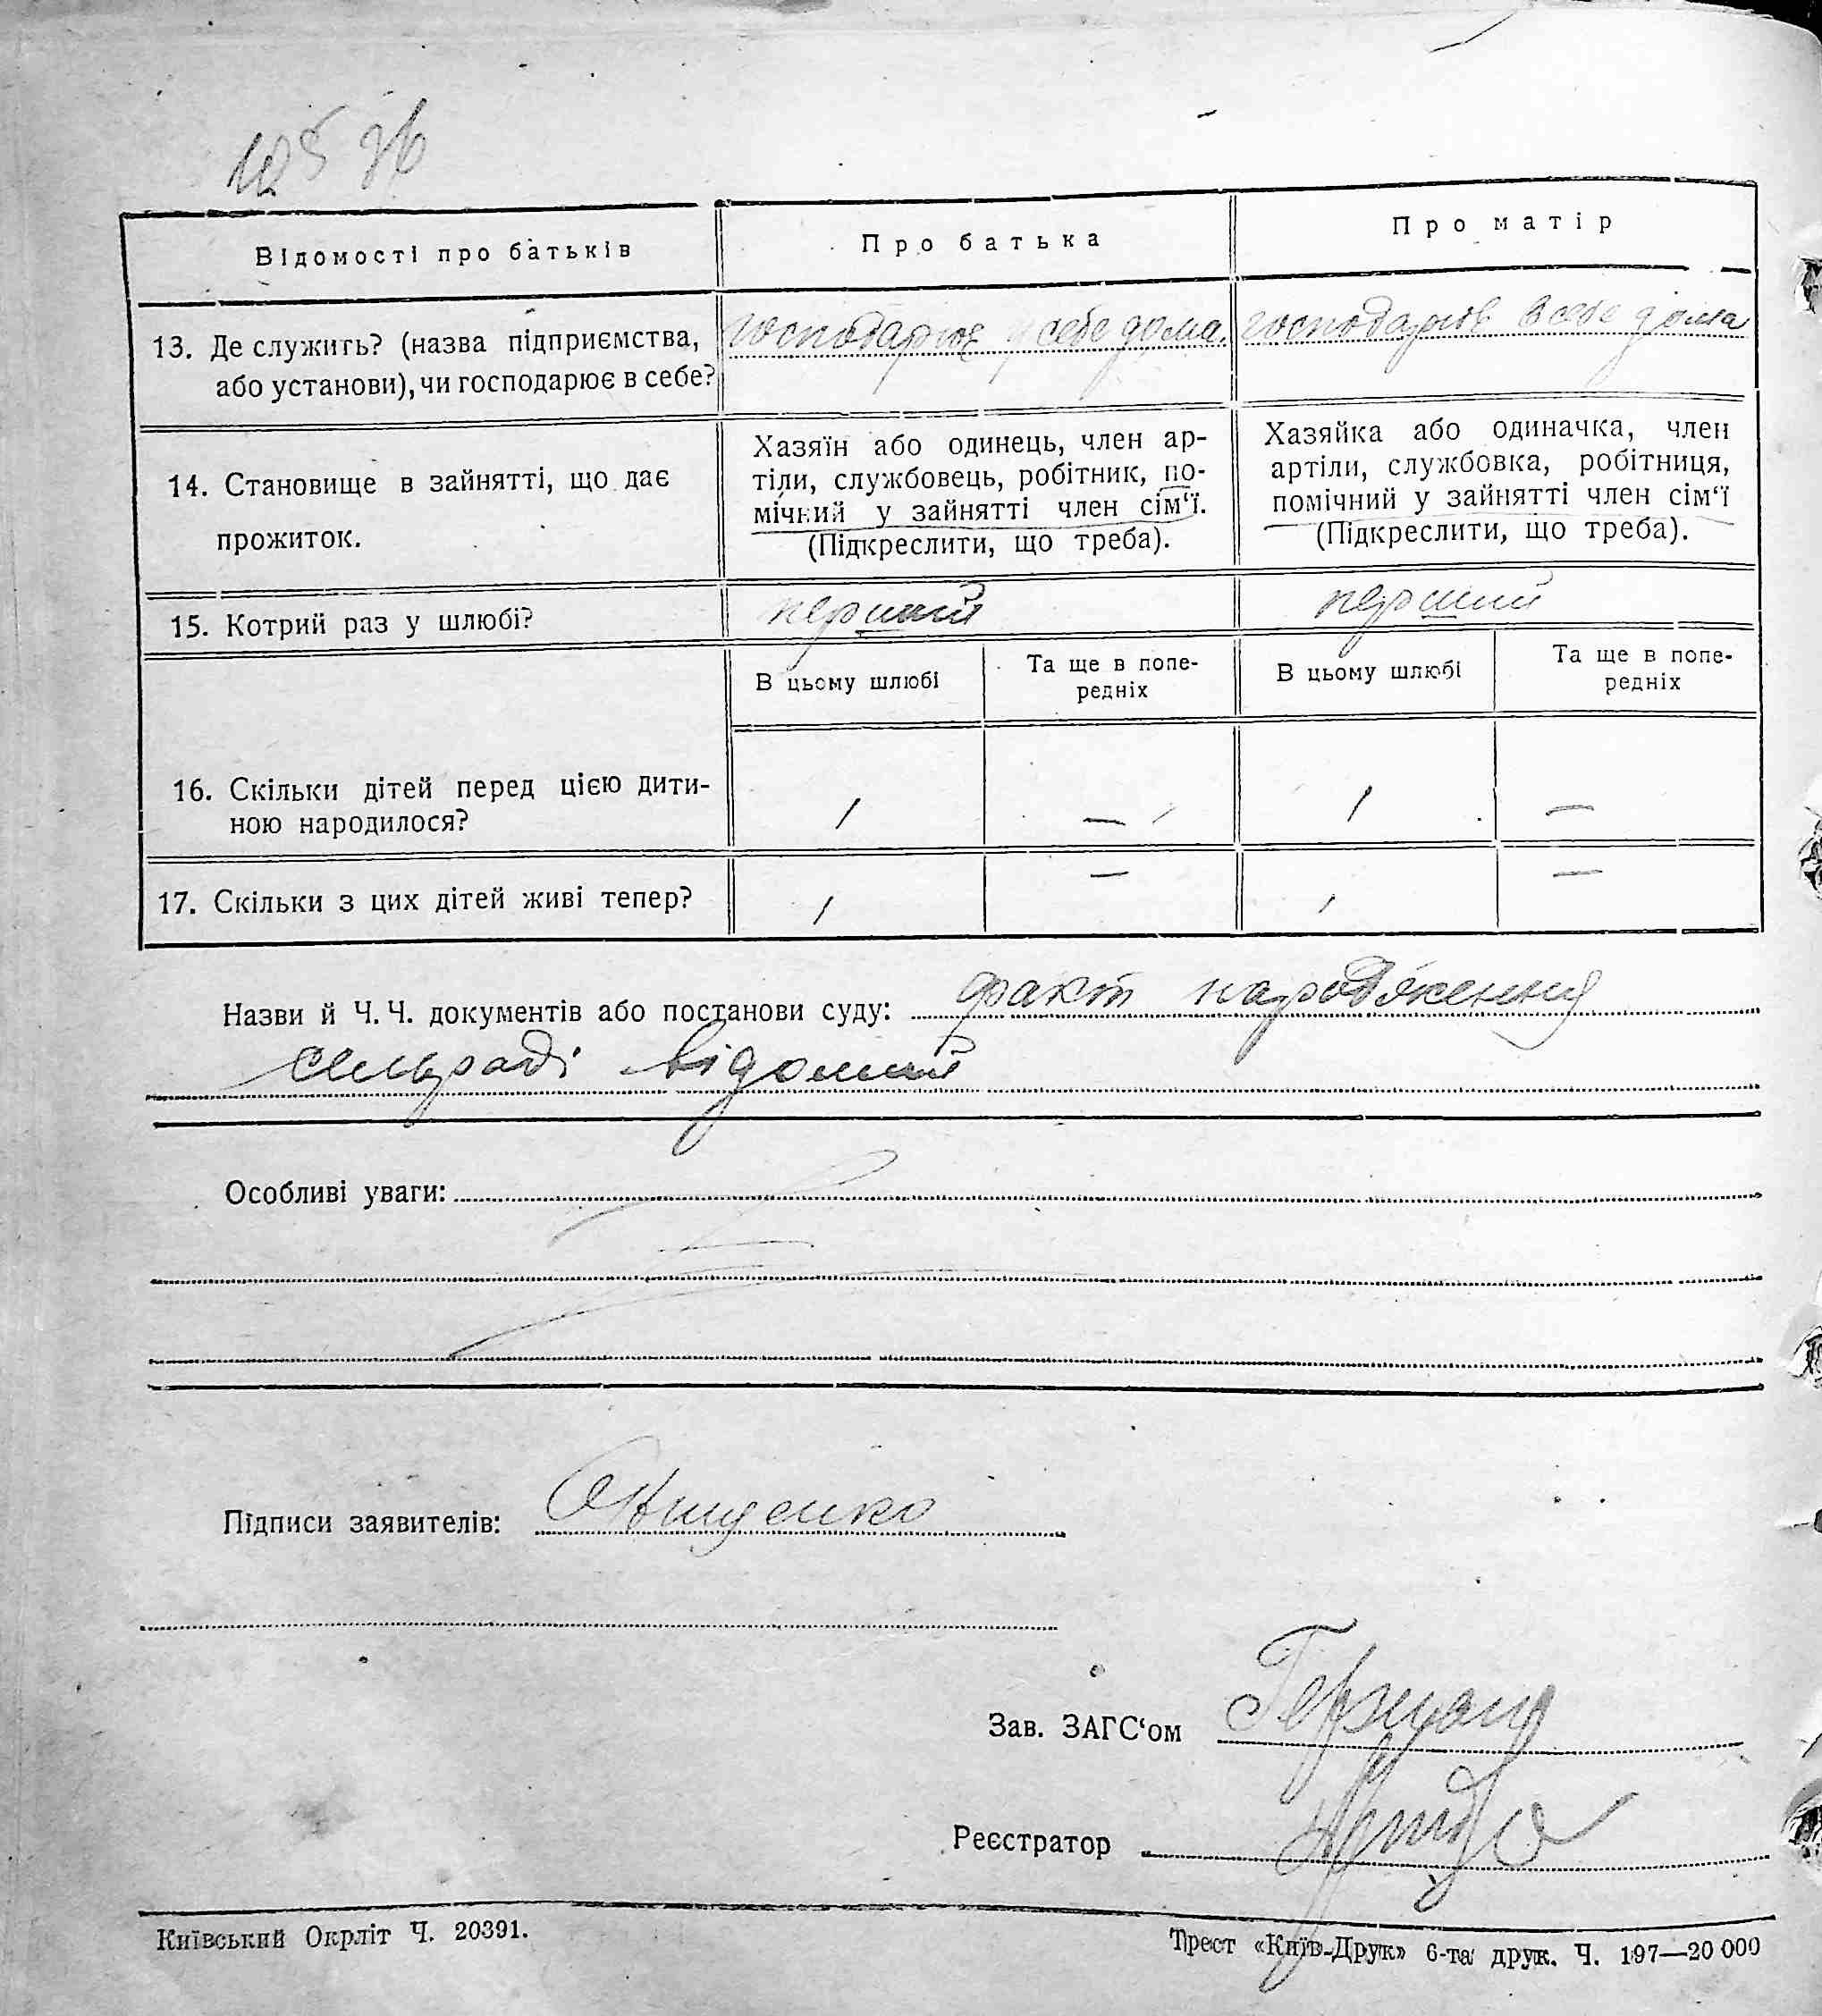 125 зв
Відомості про батьків
Про батька
Про матір
13. Де служить? (назва підприємства,
або установи), чи господарює в себе?
господарює у себе дома.
господарює в себе дома
14. Становище в зайнятті, що дає
прожиток.
Хазяїн або одинець, член ар-
тіли, службовець, робітник, по-
мічний у зайнятті член сім‘ї.
(Підкреслити, що треба).
Хазяйка або одиначка, член
артіли, службовка, робітниця,
помічний у зайнятті член сім‘ї
(Підкреслити, що треба).
15. Котрий раз у шлюбі?
перший
перший
В цьому шлюбі
Та ще в попе-
редніх
В цьому шлюбі
Та ще в попе-
редніх
16. Скільки дітей перед цією дити-
ною народилося?
1 — 1 —
17. Скільки з цих дітей живі тепер?
1 — 1 —
Назви й Ч. Ч. документів або постанови суду: факт народження
сельраді відомий
Особливі уваги:
Підписи заявителів: Онищенко
Зав. ЗАГС‘ом
Реєстратор
Київський Окрліт Ч. 20391.
Трест «Київ-Друк» 6-та друк. Ч. 197—20 000